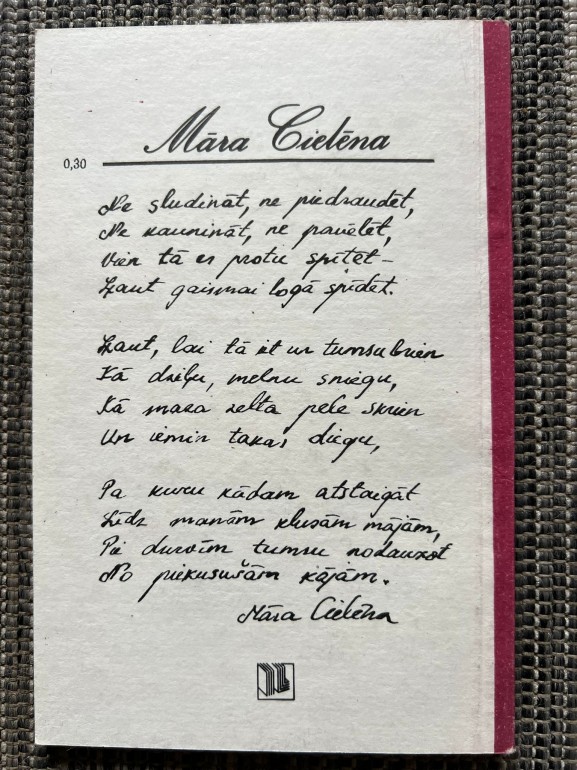 Māra Cielēna
0,30
Ne sludināt, ne piedraudēt,
Ne kaunināt, ne pavēlēt,
Vien tā es protu spītēt –
Ļaut gaismai logā spīdēt.
Ļaut, lai tā iet un tumsu brien
Kā dziļu, melnu sniegu,
Kā maza zelta pele skrien
Un iemin takas diegu,
Pa kuru kādam atstaigāt
Līdz manām klusām mājām,
Pie durvīm tumsu nodauzot
No piekusušām kājām.
Māra Cielēna